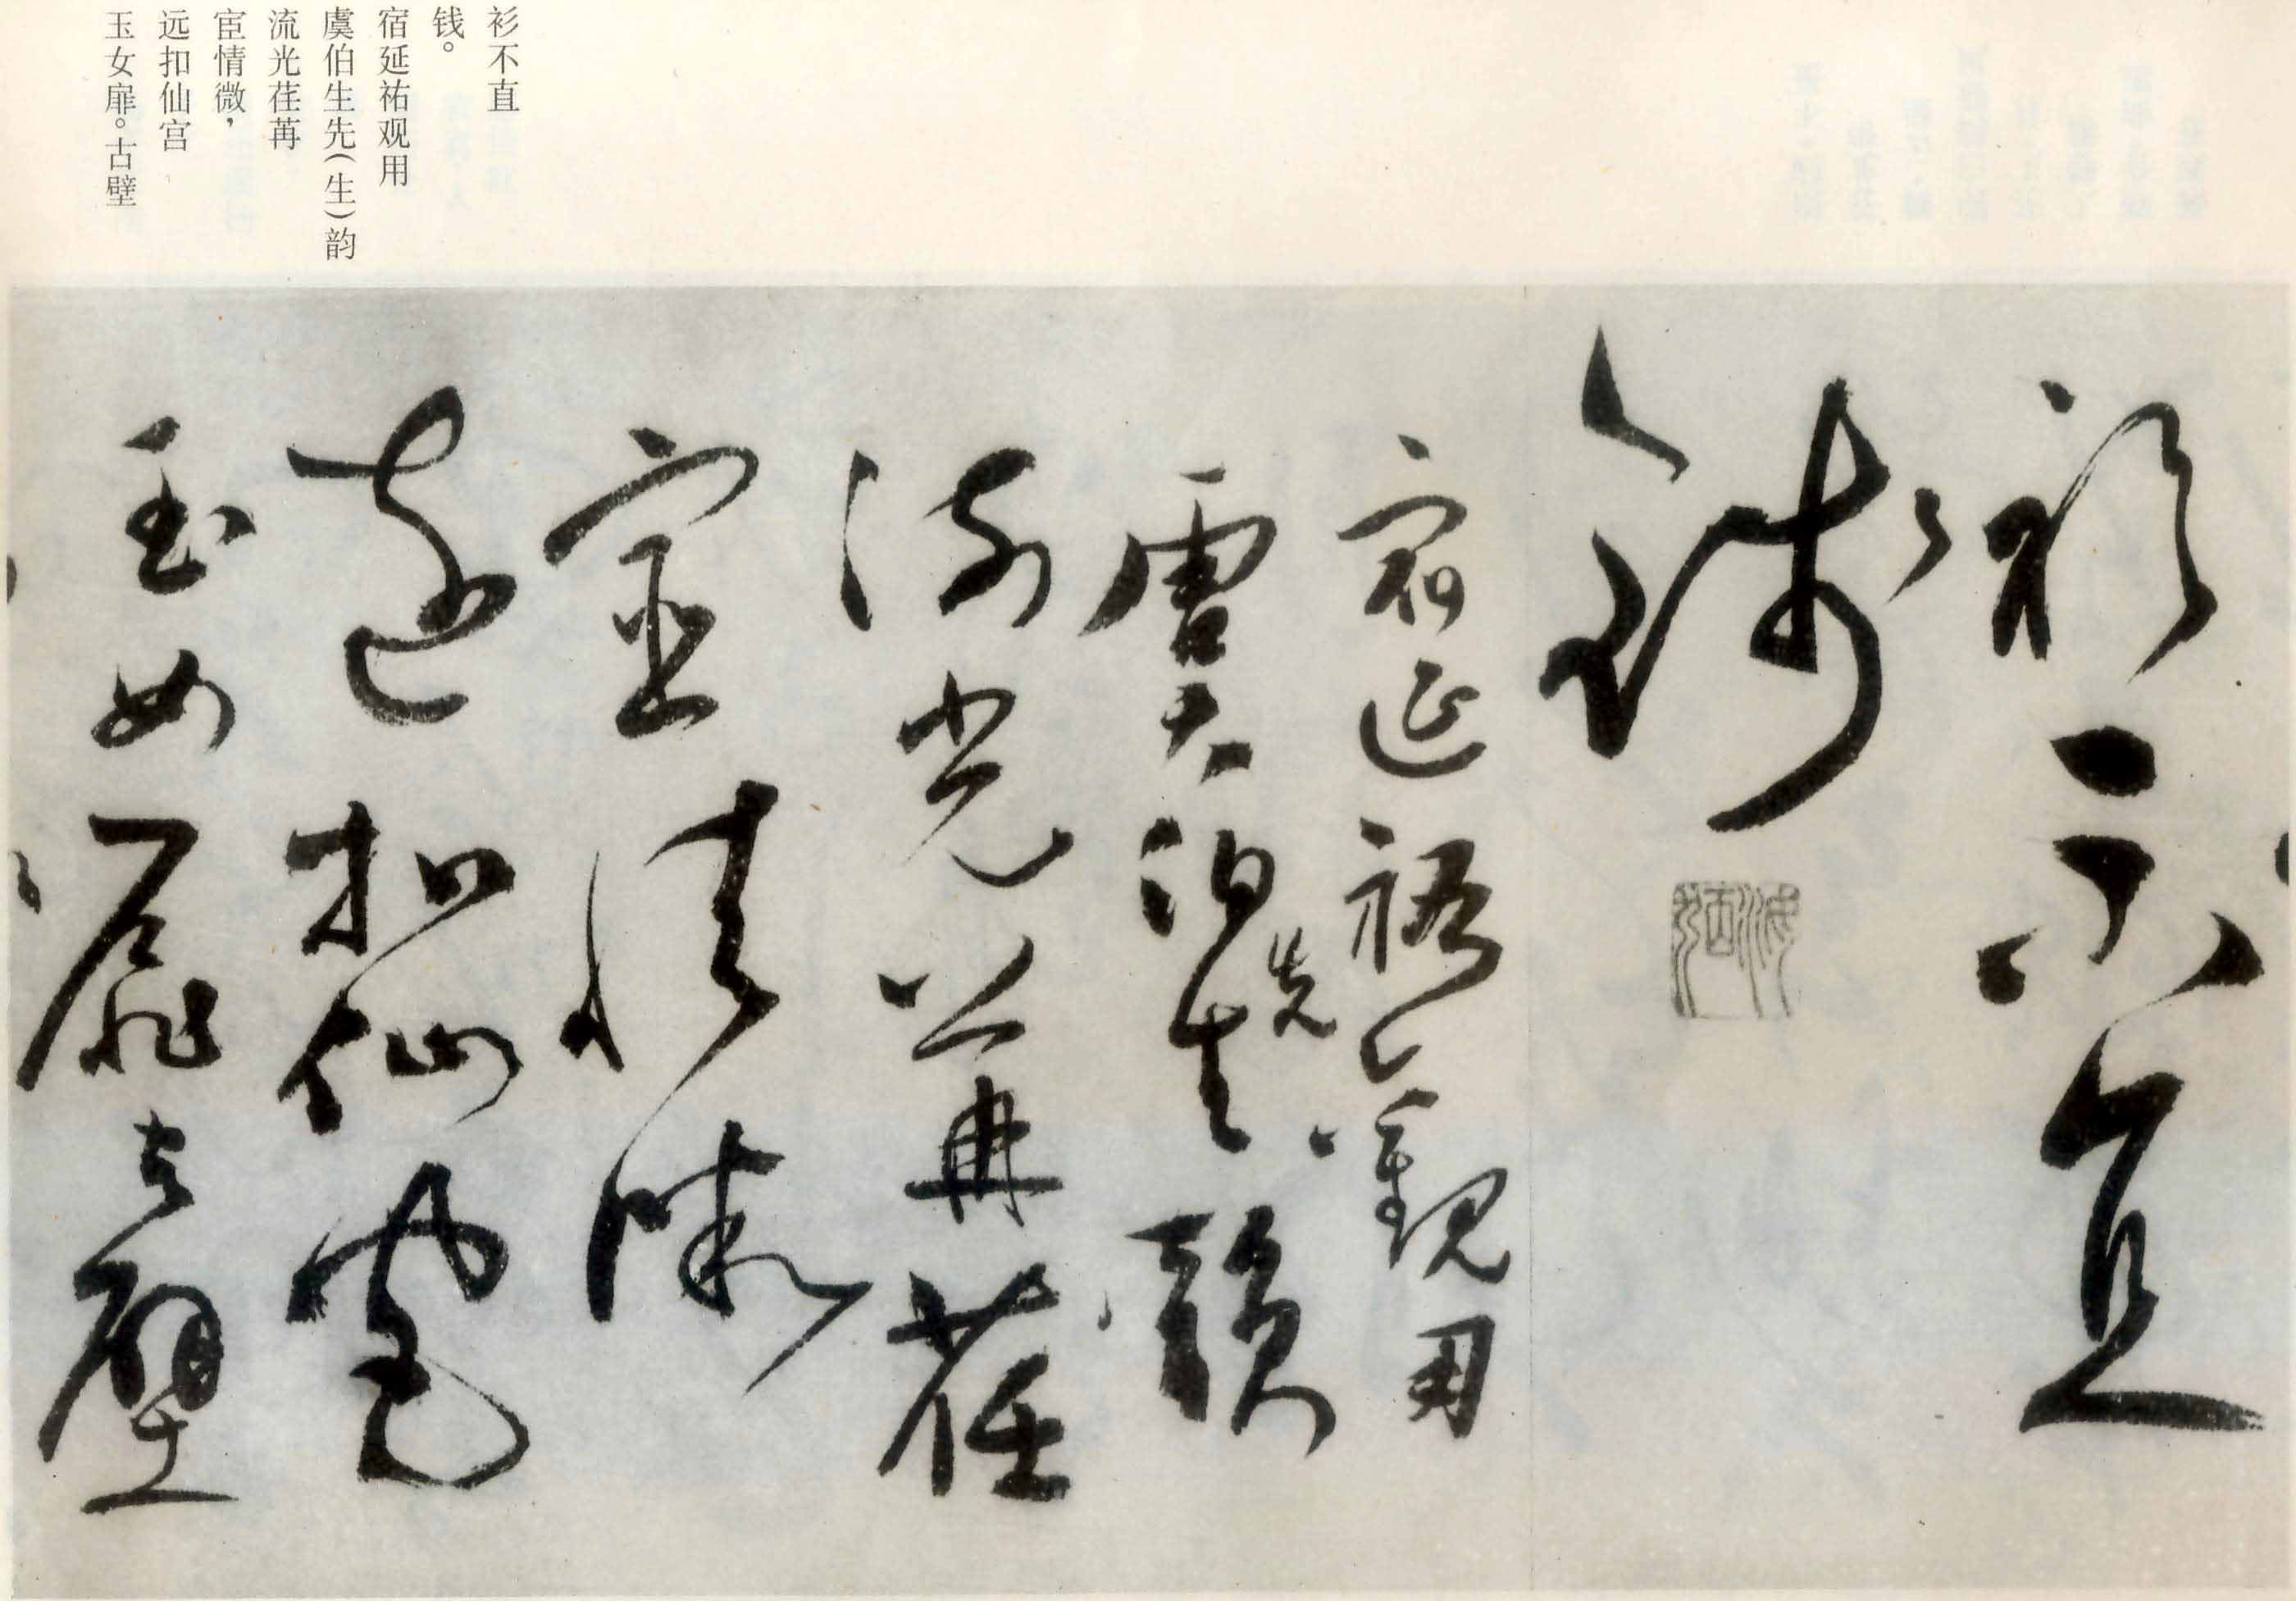 衫不直
钱。
宿延祐观用
虞伯生先(生)韵
流光荏苒
宦情微，
远扣仙宫
玉女扉。古壁
衫不直
錢
宿延祐觀用
虞伯生先韻
流光苒荏
宦情微
遠扣仙宮
玉女扉古壁